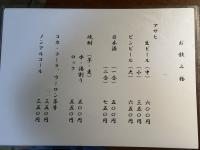 お飲み物
アサヒ
生ビール（中） 六〇〇円
（小） 三五〇円
ビンビール（大） 六五〇円
日本酒 （一合） 五〇〇円
（二合） 七五〇円
焼酎 （芋・麦）
水・湯割り 五〇〇円
ロック 五五〇円
コカ・コーラ、ウーロン茶等 三五〇円
ノンアルコール 三五〇円